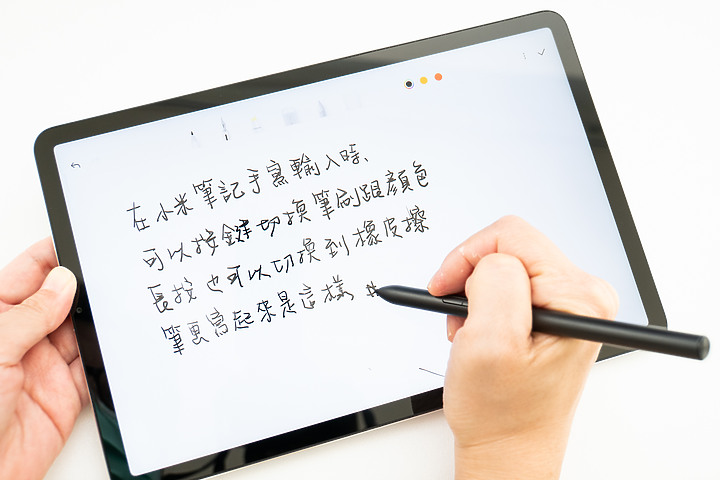 在小米筆記手寫輸入時、
可以按鍵切換筆刷跟顏色
長按也可以切換到橡皮擦
筆更寫起來是這樣